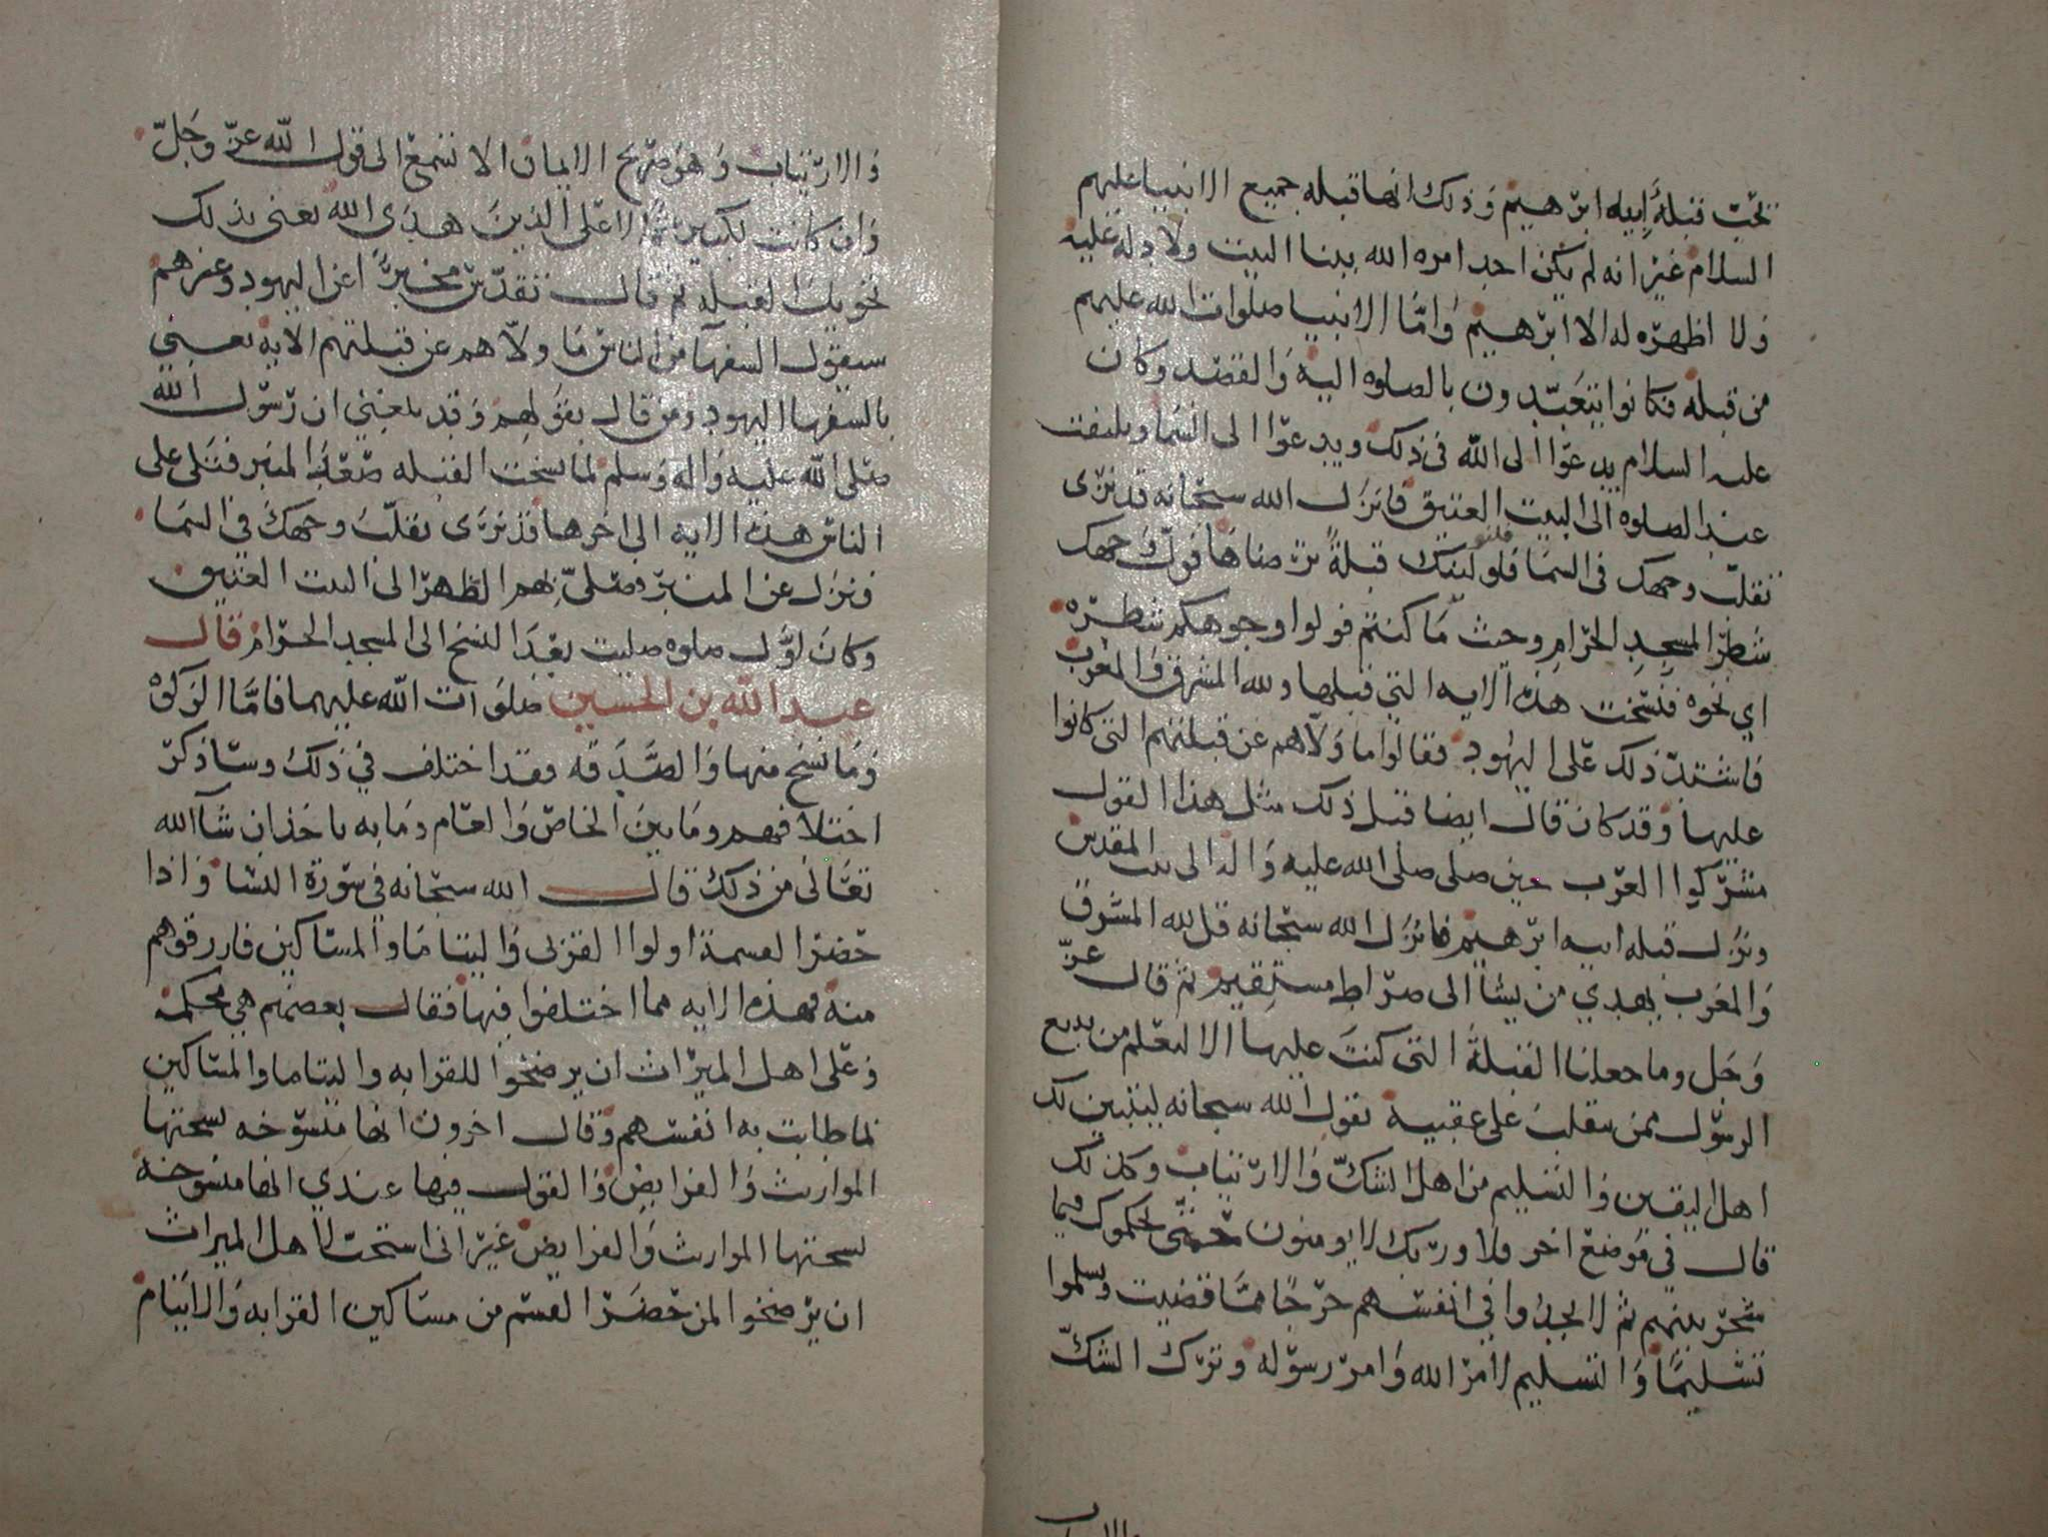 يحب قبلة ابيه ابرهيم وذلك انها قبله جميع الانبيا عليهم
السلام غير انه لم يكن احد امره الله ببنا البيت ولا دله عليه
ولا اظهره له الا ابرهيم واما الانبيا صلوات الله عليهم
من قبله فكانوا يتعبدون بالصلوه اليه والقصد وكان
عليه السلام يدعوا الى الله في ذلك ويدعوا الى السما ويلتفت
عند الصلوه الى البيت العتيق فانزل الله سبحانه قد نرى
تقلب وجهك في السما فلنولينك قبلة ترضاها فول وجهك
شطر المسجد الحرام وحيث ما كنتم فولوا وجوهكم شطره
اي نحوه فنسخت هذه الايه التي قبلها ولله المشرق والمغرب
فاشتد ذلك على اليهود فقالوا ما ولاهم عن قبلتهم التي كانوا
عليها وقد كان قال ايضا قبل ذلك مثل هذا القول
مشركوا العرب حين صلى صلى الله عليه واله الى بيت المقدس
وترك قبله ابيه ابرهيم فانزل الله سبحانه قل لله المشرق
والمغرب يهدي من يشا الى صراط مستقيم ثم قال عز
وجل وما جعلنا القبلة التي كنت عليها الا لنعلم من يتبع
الرسول ممن ينقلب على عقبيه يقول الله سبحانه ليتبين لك
اهل اليقين والتسليم من اهل الشك والارتياب وكذلك
قال في موضع اخر فلا وربك لا يومنون حتى يحكموك فيما
شجر بينهم ثم لا يجدوا في انفسهم حرجا مما قضيت ويسلموا
تسليما والتسليم لامر الله وامر رسوله وترك الشك
والارتياب وهو صريح الايمان الا تسمع الى قول الله عز وجل
وان كانت لكبيرة الا على الذين هدى الله يعني بذلك
تحويل القبله ثم قال تقدس مخبرا عن اليهود وغيرهم
سيقول السفها من الناس ما ولاهم عن قبلتهم الايه يعني
بالسفها اليهود ومن قال بقولهم وقد بلغني ان رسول الله
صلى الله عليه واله وسلم لما نسخت القبله صعد المنبر فتلى على
الناس هذه الايه الى اخرها قد نرى تقلب وجهك في السما
ونزل عن المنبر وصلى بهم الظهر الى البيت العتيق
وكان اول صلوه صليت بعد النسخ الى المسجد الحرام قال
عبد الله بن الحسين صلوات الله عليهما فاما الزكوة
وما نسخ منها والصدقه فقد اختلف في ذلك وساذكر
اختلافهم وما بين الخاص والعام وما به ناخذ ان شآ الله
تعالى من ذلك قال الله سبحانه في سورة النسا واذا
حضر القسمة اولوا القربى واليتاما والمساكين فارزقوهم
منه فهذه الايه مما اختلفوا فيها فقال بعضهم هي محكمة
وعلى اهل الميراث ان يرضخوا للقرابه واليتاما والمساكين
بما طابت به انفسهم وقال اخرون انها منسوخه نسختها
المواريث والفرايض والقول فيها عندي انها منسوخه
نسختها المواريث والفرايض غير اني استحب لاهل الميراث
ان يرضخوا لمن حضر القسم من مساكين القرابه والايتام